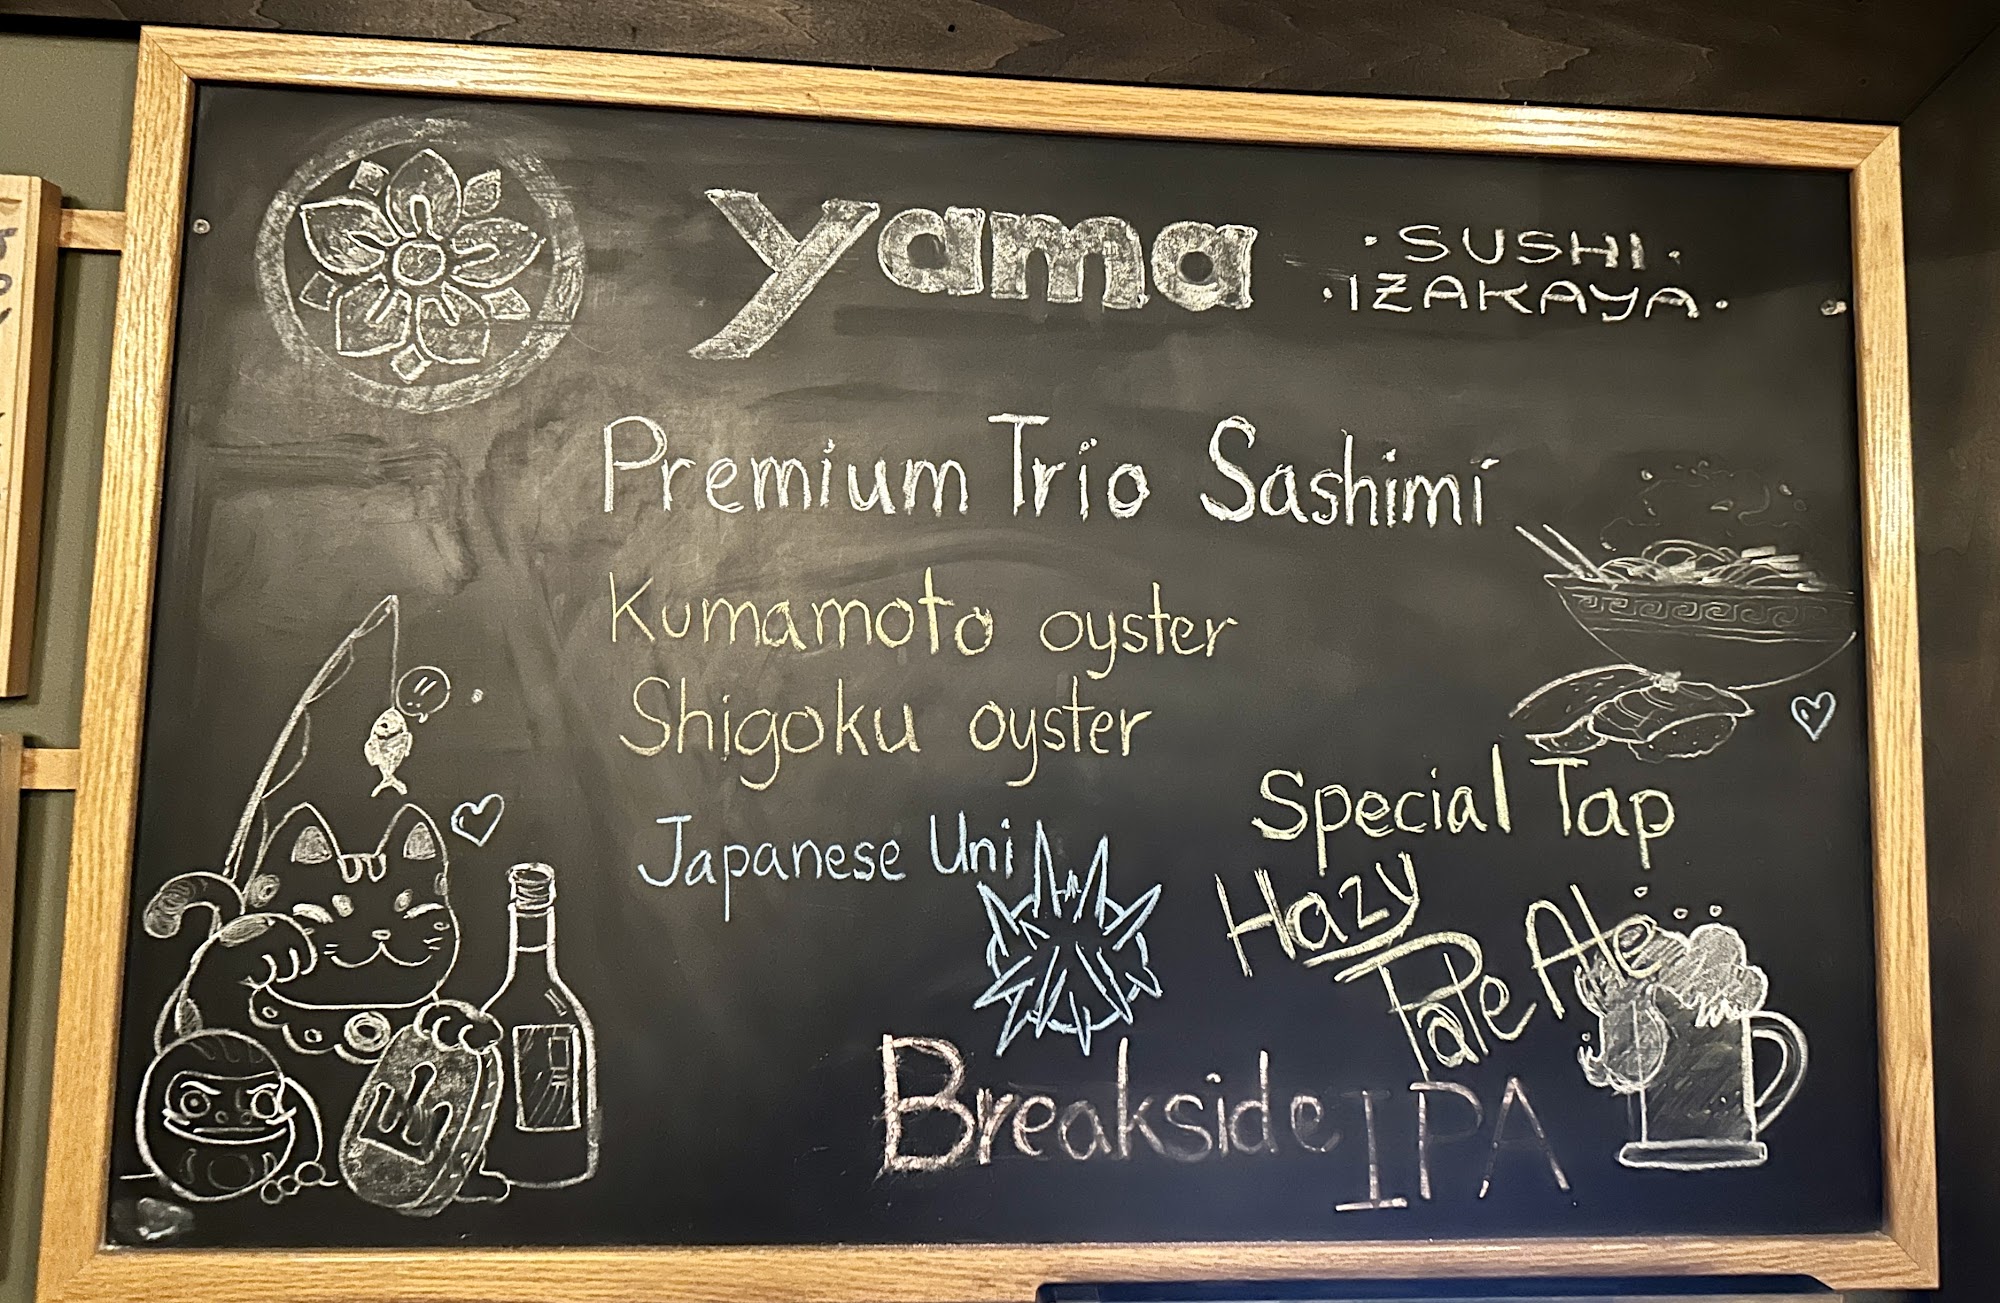 yama
· SUSHI ·
· IZAKAYA ·
Premium Trio Sashimi
Kumamoto oyster
Shigoku oyster
Japanese Uni
Special Tap
Hazy
Pale Ale
Breakside IPA
山